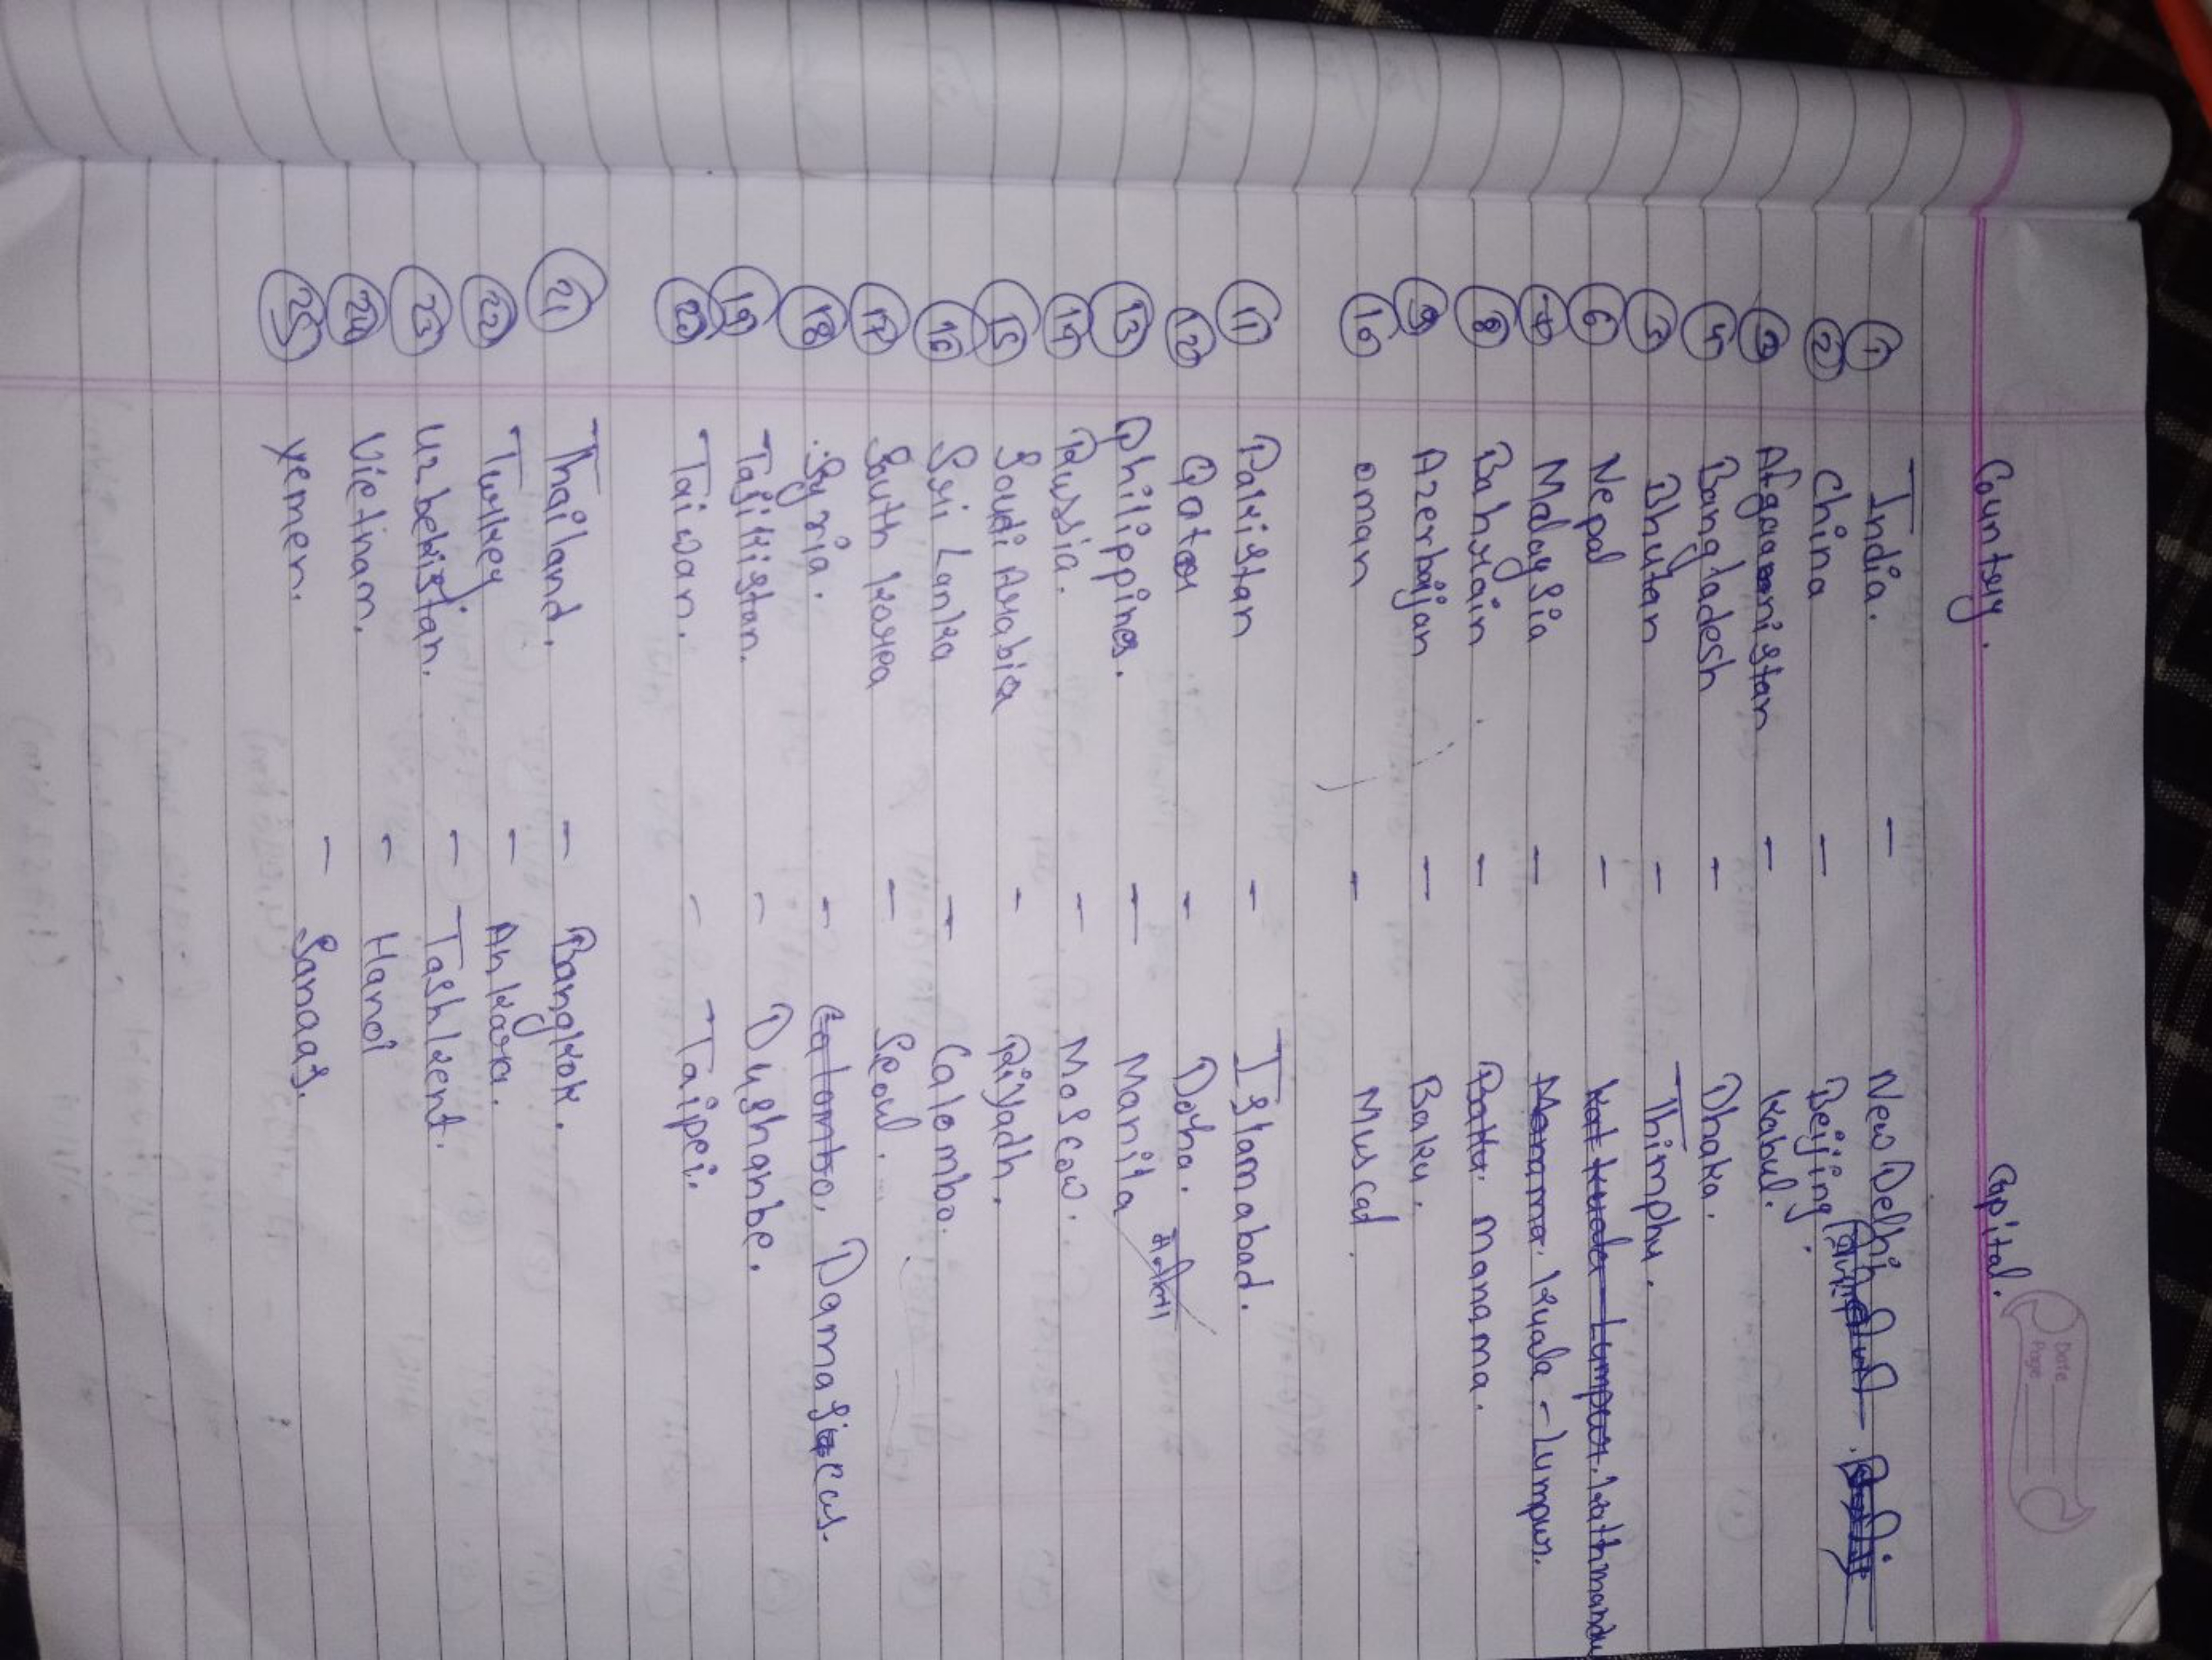 Date
Page
Country. Capital.
1 India. - New Delhi
2 China - Beijing.
3 Afgaanistan - Kabul.
4 Bangladesh - Dhaka.
5 Bhutan - Thimphu.
6 Nepal - Kathmandu
7 Malaysia - Kuala - Lumpur.
8 Bahrain - Manama.
9 Azerbaijan - Baku.
10 Oman - Muscat.
11 Pakistan - Islamabad.
12 Qatar - Doha.
13 Philippines. - Manila
14 Russia. - Moscow.
15 Soudi Arabia - Riyadh.
16 Sri Lanka - Calombo.
17 South Korea - Seoul.
18 Syria. - Calombo, Damascus.
19 Tajikistan. - Dushanbe.
20 Taiwan. - Taipei.
21 Thailand. - Bangkok.
22 Turkey - Ankara.
23 Uzbekistan. - Tashkent.
24 Vietnam. - Hanoi
25 Yemen. - Sanaas.